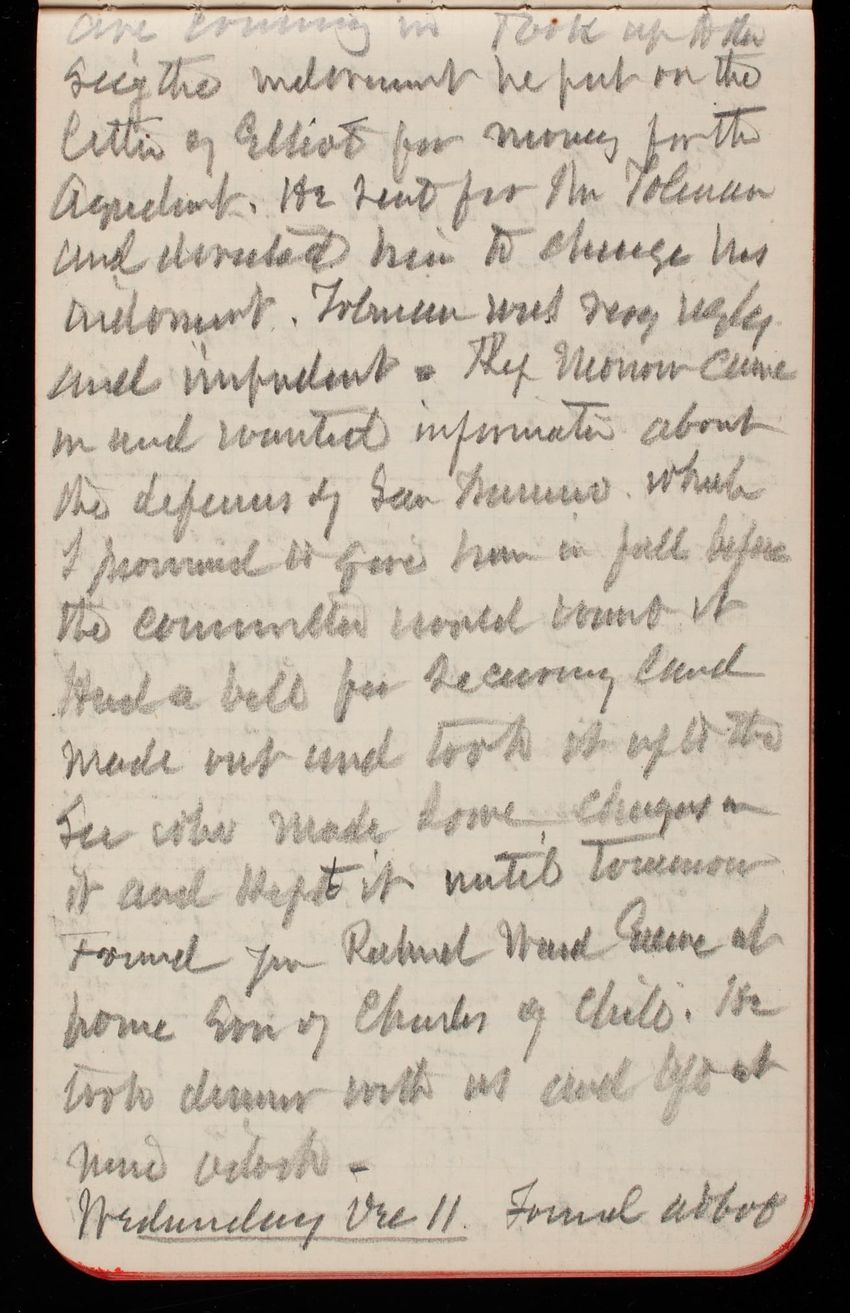 are coming in Took up to the
Secy the indorsement he put on the
letter of Elliot for money for the
Aqueduct. He sent for Mr Tolman
and directed him to change his
indorsment. Tolman was very ugly
and impudent - Morrow came
in and wanted informatin about
the defenses of San which
I promised to give him in full before
the committee would want it
Had a bill for securing land
made out and took it up to the
Sec who made some changes in
it and Kept it until tomorrow
Found Ward at
home Son of Charles of Chili. He
took dinner with us and left at
nine oclock -
Wednesday Dec 11. Found